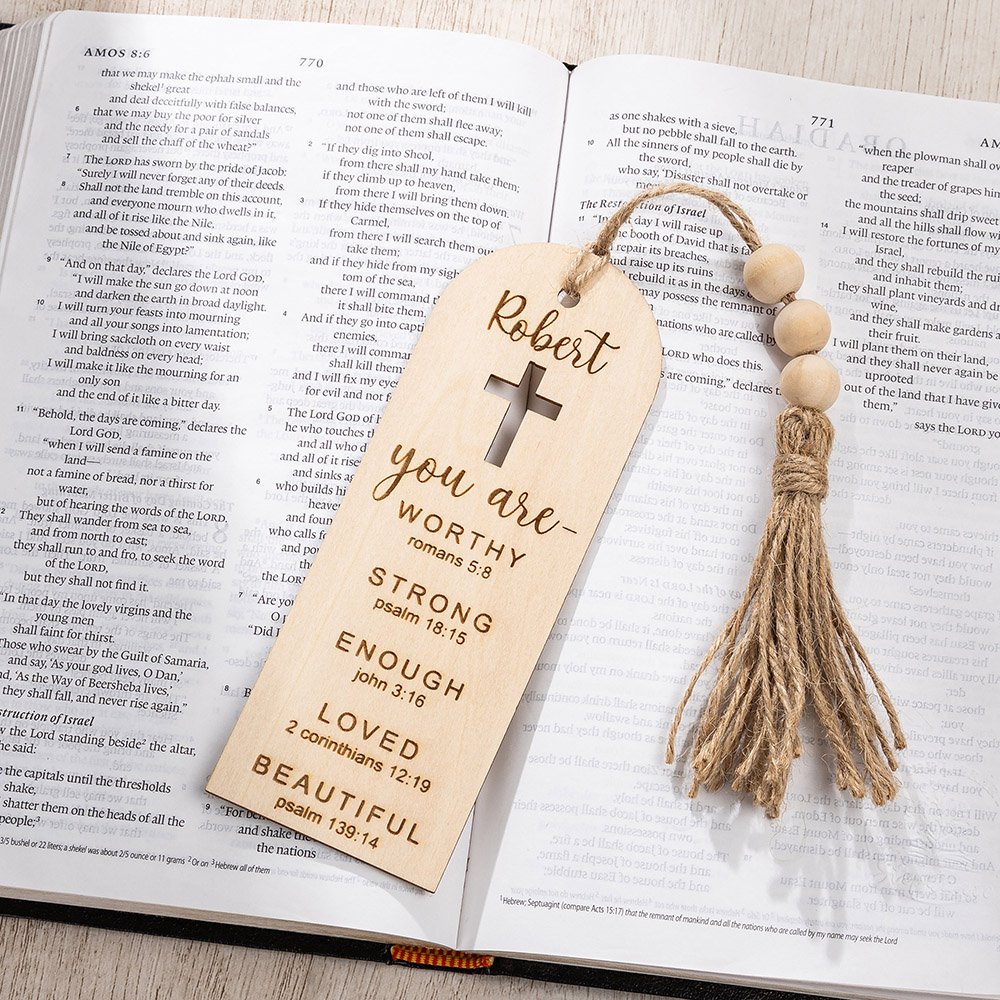 AMOS 8:6
770
that we may make the ephah small and the
shekel¹ great
and deal deceitfully with false balances,
6 that we may buy the poor for silver
and the needy for a pair of sandals
and sell the chaff of the wheat?”
7 The LORD has sworn by the pride of Jacob:
“Surely I will never forget any of their deeds.
8 Shall not the land tremble on this account,
and everyone mourn who dwells in it,
and all of it rise like the Nile,
and be tossed about and sink again, like
the Nile of Egypt?”
9 “And on that day,” declares the Lord GOD,
“I will make the sun go down at noon
and darken the earth in broad daylight.
10 I will turn your feasts into mourning
and all your songs into lamentation;
I will bring sackcloth on every waist
and baldness on every head;
I will make it like the mourning for an
only son
and the end of it like a bitter day.
11 “Behold, the days are coming,” declares the
Lord GOD,
“when I will send a famine on the
land—
not a famine of bread, nor a thirst for
water,
but of hearing the words of the LORD.
2 They shall wander from sea to sea,
and from north to east;
they shall run to and fro, to seek the word
of the LORD,
but they shall not find it.
“In that day the lovely virgins and the
young men
shall faint for thirst.
Those who swear by the Guilt of Samaria,
and say, ‘As your god lives, O Dan,’
and, ‘As the Way of Beersheba lives,’
they shall fall, and never rise again.”
struction of Israel
w the Lord standing beside² the altar,
he said:
e the capitals until the thresholds
shake,
shatter them on the heads of all the
people;³
and those who are left of them I will kill
with the sword;
not one of them shall flee away;
not one of them shall escape.
2 “If they dig into Sheol,
from there shall my hand take them;
if they climb up to heaven,
from there I will bring them down.
3 If they hide themselves on the top of
Carmel,
from there I will search them out
take them;
and if they hide from my sight
tom of the sea,
there I will command
it shall bite them.
4 And if they go into capt
enemies,
there I will comman
it shall kill them
and I will fix my eyes
for evil and not f
5 The Lord GOD of
he who touches t
and all who d
and all of it rises
and sinks a
6 who builds hi
heaven
and foun
who calls f
and pou
the LORD
7 “Are you
O
“Did I
8
9 “For behold
and shake the
the nations
3/5 bushel or 22 liters; a shekel was about 2/5 ounce or 11 grams ² Or on ³ Hebrew all of them
771
AM
as one shakes with a sieve,
but no pebble shall fall to the earth.
10 All the sinners of my people shall die by
the sword,
who say, ‘Disaster shall not overtake or
The Restoration of Israel
11 “In that day I will raise up
the booth of David that is fa
repair its breaches,
and raise up its ruins
rebuild it as in the days o
may possess the remnant of
nations who are called by
LORD who does this.
are coming,” declares t
“when the plowman shall ov
reaper
and the treader of grapes him
the seed;
the mountains shall drip sweet
and all the hills shall flow wi
14 I will restore the fortunes of my
Israel,
and they shall rebuild the ruin
and inhabit them;
they shall plant vineyards and d
wine,
and they shall make gardens a
their fruit.
I will plant them on their land,
and they shall never again be
uprooted
out of the land that I have give
them,”
says the LORD you
¹ Hebrew; Septuagint (compare Acts 15:17) that the remnant of mankind and all the nations who are called by my name may seek the Lord
Robert
you are-
WORTHY
romans 5:8
STRONG
psalm 18:15
ENOUGH
john 3:16
LOVED
2 corinthians 12:19
BEAUTIFUL
psalm 139:14